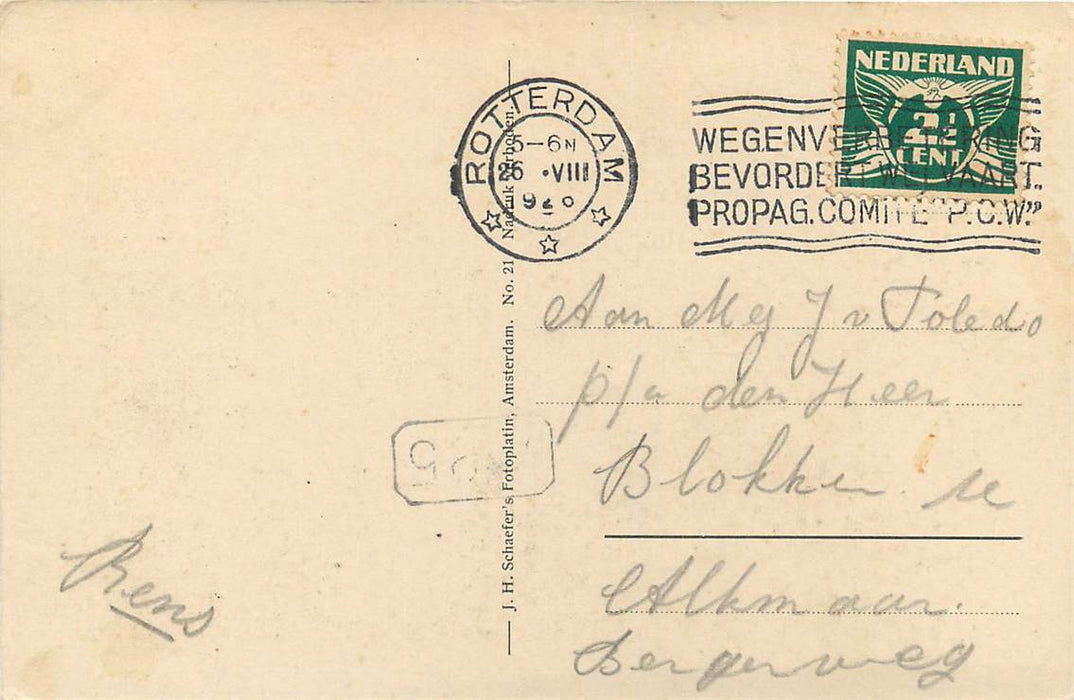 NEDERLAND
2½
CENT
ROTTERDAM
5-6N
26 .VIII
WEGENVERBETERING
BEVORDERT WELVAART.
PROPAG. COMITE "P.C.W."
J. H. Schaefer's Fotoplatin, Amsterdam. No. 21 Nadruk verboden.
Aan Mej J v Toledo
p/a den Heer
Blokker
Alkmaar.
Bergerweg
Rens